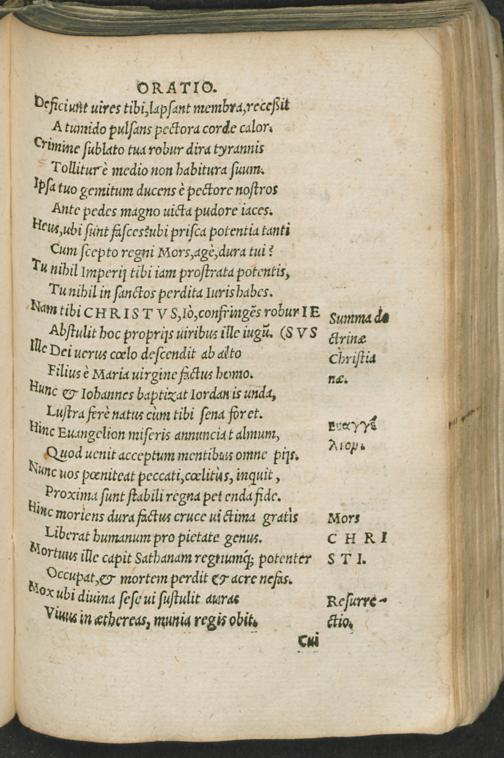 ORATIO.
Deficiunt uires tibi, lapsant membra, receßit
A tumido pulsans pectora corde calor.
Crimine sublato tua robur dira tyrannis
Tollitur è medio non habitura suum.
Ipsa tuo gemitum ducens è pectore nostros
Ante pedes magno uicta pudore iaces.
Heus, ubi sunt fasces? ubi prisca potentia tanti
Cum scepto regni Mors, agè, dura tui?
Tu nihil Imperij tibi iam prostrata potentis,
Tu nihil in sanctos perdita Iuris habes.
Nam tibi CHRISTVS, Iò, confringẽs robur IE
Abstulit hoc proprijs uiribus ille iugũ. (SVS
Ille Dei uerus cœlo descendit ab alto
Filius è Maria virgine factus homo.
Hunc & Iohannes baptizat Iordanis unda,
Lustra ferè natus cùm tibi sena foret.
Hinc Euangelion miseris annunciat almum,
Quod uenit acceptum mentibus omne pijs.
Nunc uos pœniteat peccati, cœlitùs, inquit,
Proxima sunt stabili regna petenda fide.
Hinc moriens dura factus cruce uictima gratis
Liberat humanum pro pietate genus.
Mortuus ille capit Sathanam regnumq́; potenter
Occupat, & mortem perdit & acre nefas.
Mox ubi diuina sese ui sustulit auras
Viuus in æthereas, munia regis obit.
Cui
Summa do
ctrinæ
Christia
næ.
Ευαγγέ
λιον.
Mors
CHRI
STI.
Resurre-
ctio.